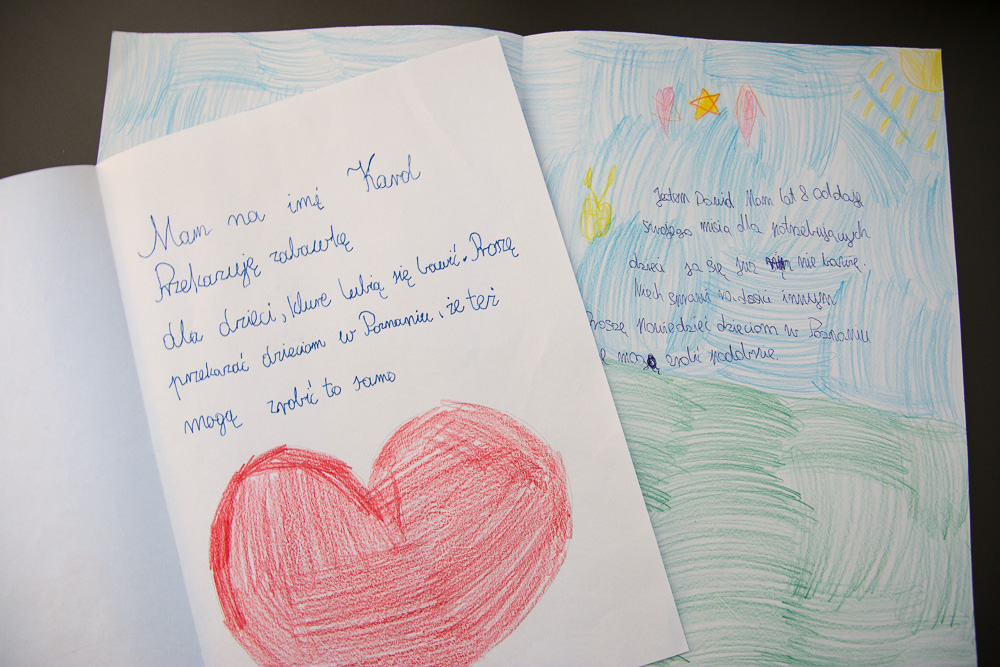 Mam na imię Karol
Przekazuję zabawkę
dla dzieci, kture lubią się bawić. Proszę
przekazać dzieciom w Poznaniu, że też
mogą zrobić to samo
Jestem Dawid Mam lat 8 oddaję
swojego misia dla potrzebujących
dzieci ja się już nie bawię.
Niech sprawi radości innym
Proszę powiedzieć dzieciom w Poznaniu
że mogą zrobić podobnie.